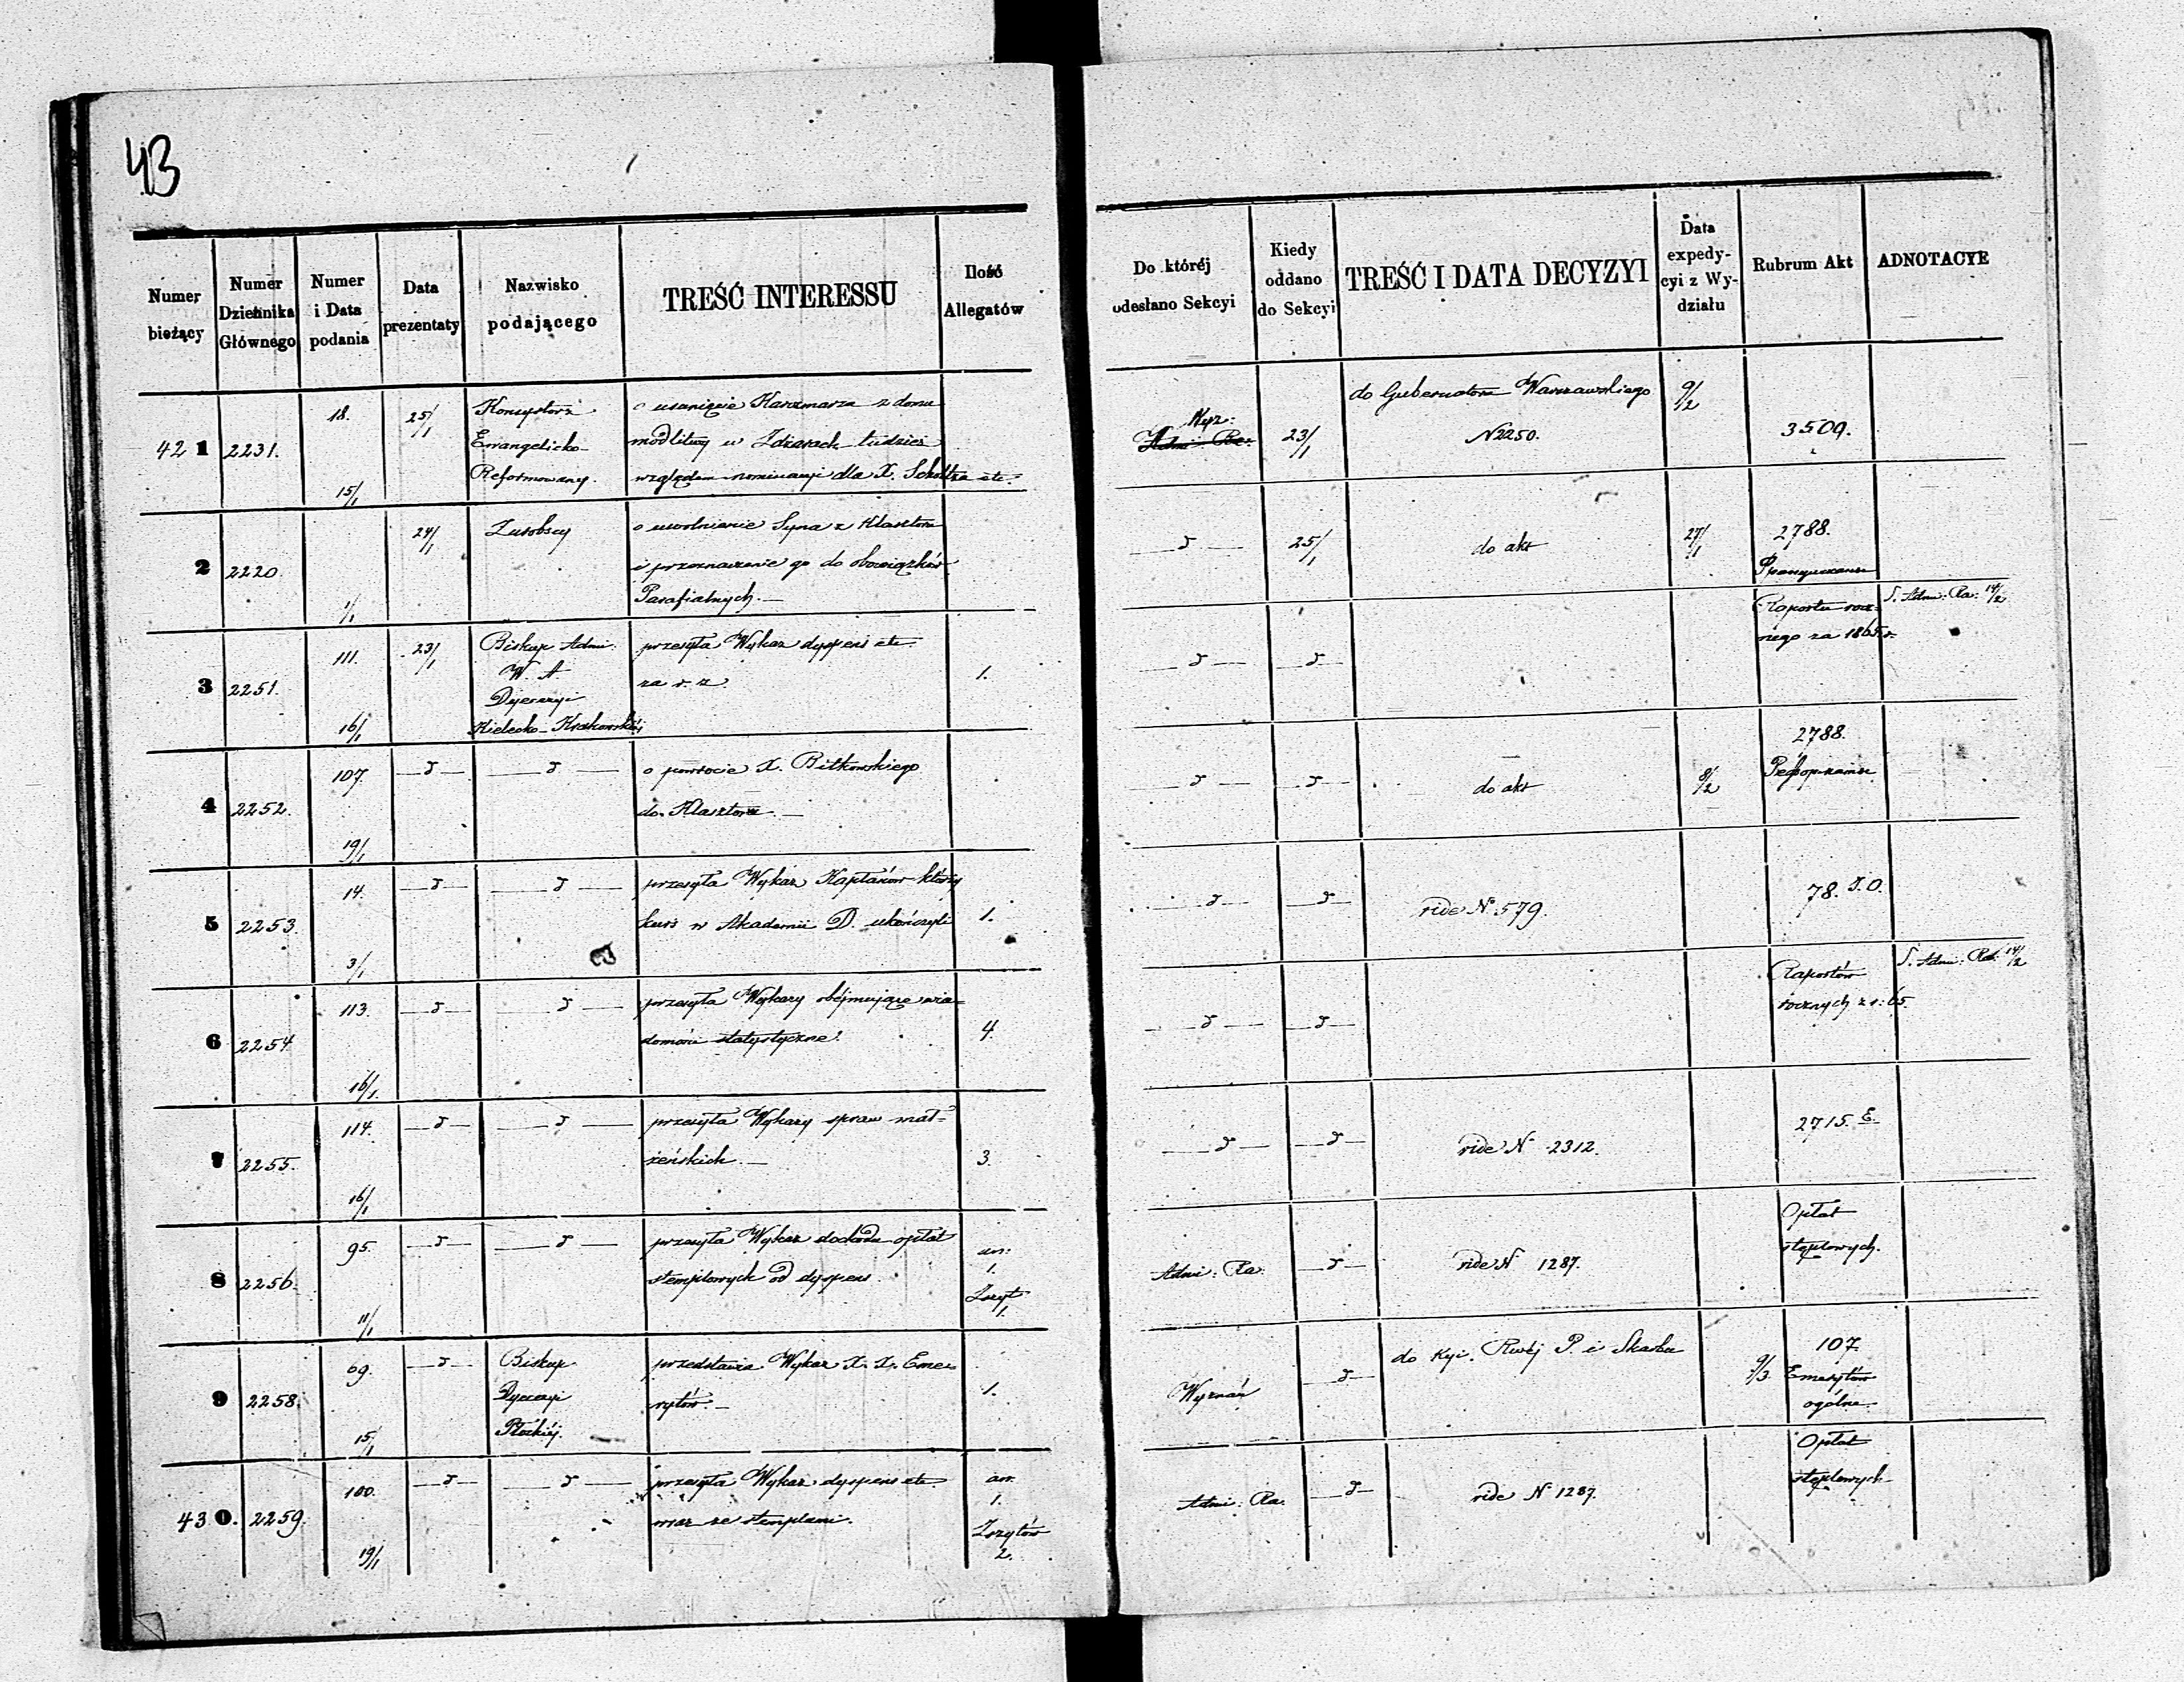 43
Numer bieżący
Numer Dziennika Głównego
Numer i Data podania
Data prezentaty
Nazwisko podającego
TREŚĆ INTERESSU
Ilość Allegatów
Do któréj odesłano Sekcyi
Kiedy oddano do Sekcyi
TREŚĆ I DATA DECYZYI
Data expedycyi z Wydziału
Rubrum Akt
ADNOTACYE
421 2231. 18. 15/1 25/1
Konsystorz
Ewangelicko-
Reformowany.
o usunięcie Karczmarza z domu
modlitwy w Zdżarach tudzież
względem nominacyi dla X. Scholtza etc.
Wyz:
Admi: Ra:
23/1
do Gubernatora Warszawskiego
N 2250.
9/2
3509.
2 2220. 1/1 24/1
o uwolnienie Syna z Klasztoru
i przeznaczenie go do obowiązków
Parafialnych. —
— d — 25/1
do akt
27/1
2788.
3 2251. 111. 16/1 23/1
Biskup Admi:
W. A
Dyecezyi
Kielecko-Krakowskiéj
przesyła Wykaz dyspens etc.
za r. z.
1.
— d — — d —
Raportu rocz-
nego za 1865 r.
S. Admi: Ra: 14/2
4 2252. 107. 19/1 — d — — d —
o powrocie X. Bitkowskiego
do Klasztoru. —
— d — — d —
do akt
8/2
2788.
5 2253. 14. 3/1 — d — — d —
przesyła Wykaz Kapłanów którzy
kurs w Akademii D. ukończyli
1.
— d — — d —
vide N 579.
78. D.O.
6 2254 113. 16/1 — d — — d —
przesyła Wykazy obéjmujące wia-
domości statystyczne.
4.
— d — — d —
Raportów
rocznych z r: 65.
S. Admi: Ra: 14/2
7 2255. 114. 16/1 — d — — d —
przesyła Wykazy spraw mał-
żeńskich. —
3.
— d — — d —
vide N 2312.
2715. E.
8 2256. 95. 11/1 — d — — d —
przesyła Wykaz dochodu opłat
stemplowych od dyspens.
1.
Zszyt
1.
Admi: Ra: — d —
vide N 1287.
Opłat
stęplowych.
9 2258. 69. 15/1 — d —
Biskup
Dyecezyi
Płockiéj.
przedstawia Wykaz X. X. Eme-
rytów. —
1.
Wyznań — d —
do Kyi. Rząj P. i Skarbu
9/3
107.
Emerytów
ogólne.
430. 2259. 100. 19/1 — d — — d —
przesyła Wykaz dyspens etc.
wraz ze stemplami.
1.
Zszytów
2.
Admi: Ra. — d —
vide N 1287.
Opłat
stęplowych